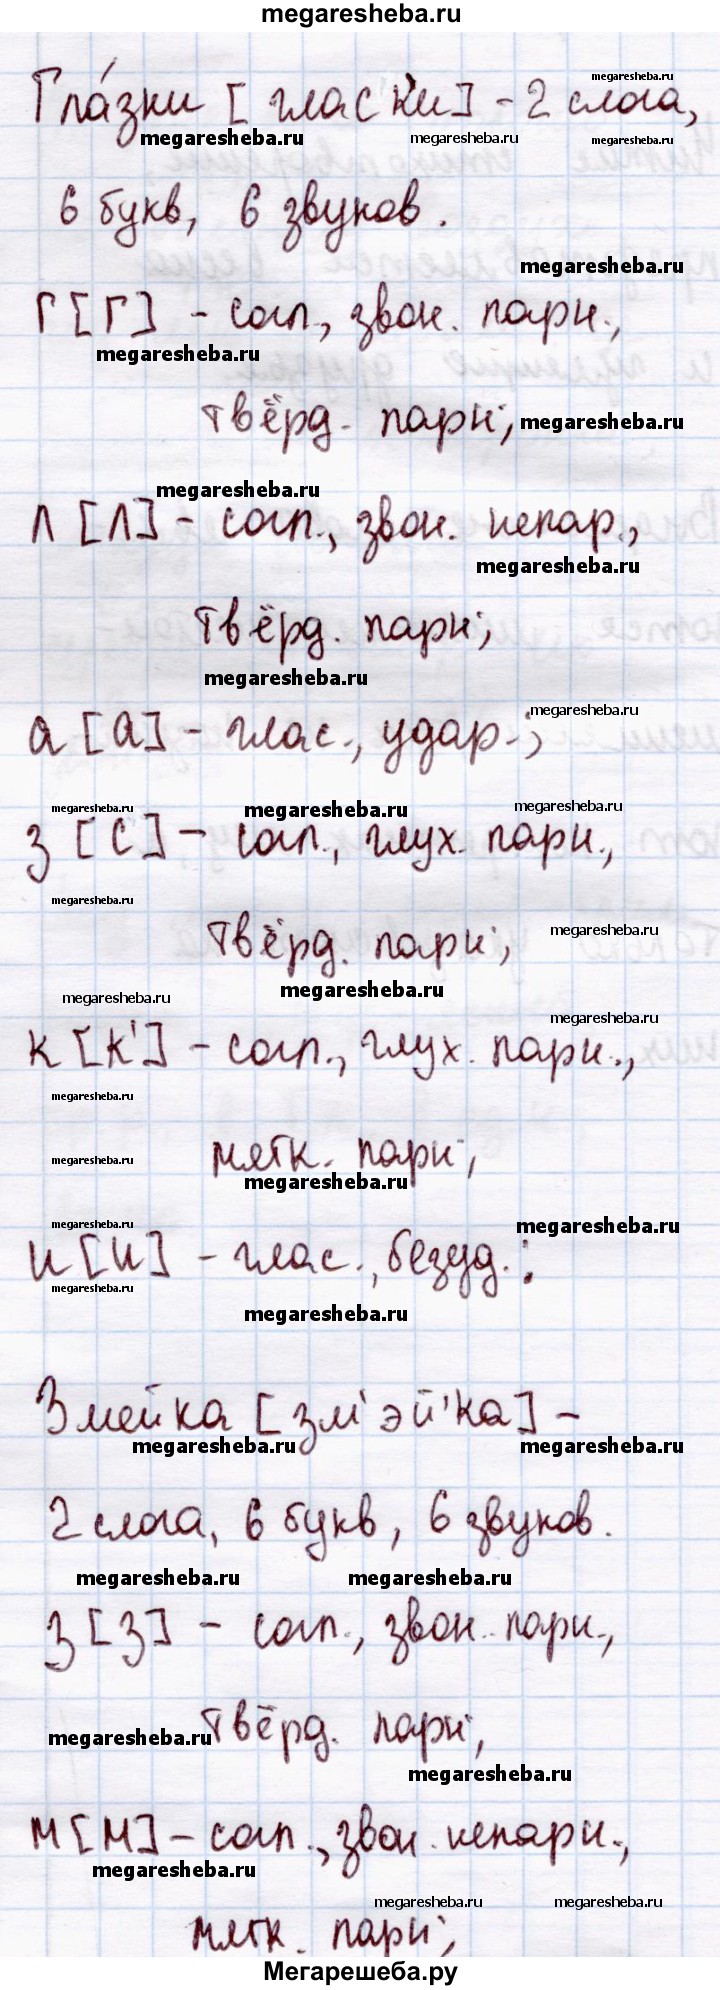 megaresheba.ru
Гла́зки [глас'к'и] - 2 слога,
6 букв, 6 звуков.
г [г] - согл., звон. парн.,
твёрд. парн.;
л [л] - согл., звон. непар.,
твёрд. парн.;
а [а] - глас., удар.;
з [с] - согл., глух. парн.,
твёрд. парн.;
к [к'] - согл., глух. парн.,
мягк. парн.;
и [и] - глас., безуд.;
Змейка [зм'эй'ка] -
2 слога, 6 букв, 6 звуков.
з [з] - согл., звон. парн.,
твёрд. парн.;
м [м] - согл., звон. непарн.,
мягк. парн.;
Мегарешеба.ру